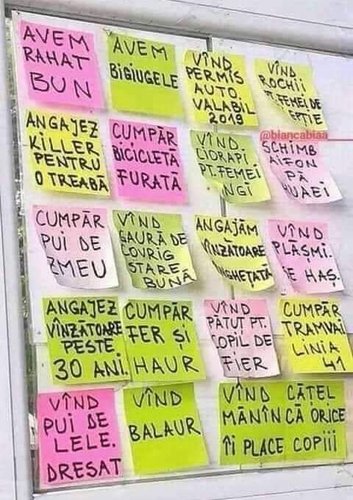 AVEM
RAHAT
BUN
AVEM
BIGIUGELE
VÎND
PERMIS
AUTO
VALABIL
2019
VÎND
ROCHII
PT. FEMEI DE
EPȚIE
@biancabiaa
ANGAJEZ
KILLER
PENTRU
O TREABĂ
CUMPĂR
BICICLETĂ
FURATĂ
VÎND
CIORAPI
PT. FEMEI
NGI
SCHIMB
AIFON
PĂ
HUAEI
CUMPĂR
PUI DE
ZMEU
VÎND
GAURĂ DE
COVRIG
STAREA
BUNĂ
ANGAJĂM
VÎNZĂTOARE
NGHEȚATĂ
VÎND
PLĂȘMI.
E HAȘ.
ANGAJEZ
VÎNZĂTOARE
PESTE
30 ANI.
CUMPĂR
FER ȘI
HAUR
VÎND
PĂTUȚ PT.
COPIL DE
FIER
CUMPĂR
TRAMVAI
LINIA
41
VÎND
PUI DE
LELE.
DRESAT
VÎND
BALAUR
VÎND CĂȚEL
MĂNÎNCĂ ORICE
ÎI PLACE COPIII